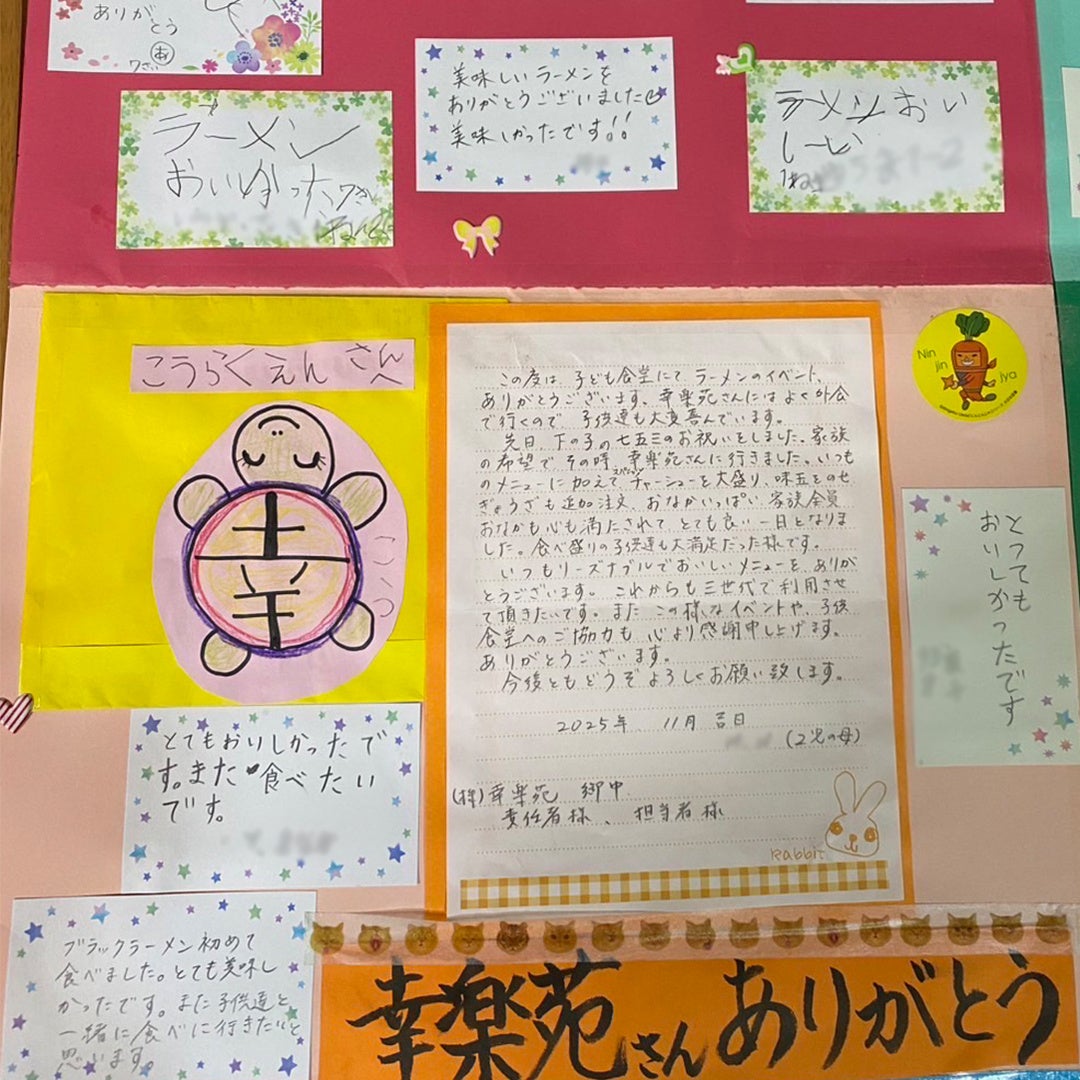 ありがとう
7さい
ラーメン
おいしかった 7さい
美味しいラーメンを
ありがとうございました♡
美味しかったです!!
ラーメンおい
しーい
こうらくえんさん
幸
こう
Nin
jin
iya
この度は、子ども食堂にて ラーメンのイベント、
ありがとうございます。幸楽苑さんにはよく外食
で行くので、子供達も大変喜んでいます。
先日、下の子の七五三のお祝いをしました。家族
の希望で その時、幸楽苑さんに行きました。いつも
のメニューに加えて チャーシューを大盛り、味玉をのせ
ぎょうざも追加注文、おなかいっぱい、家族全員
おなかも心も満たされて とても良い一日となりま
した。食べ盛りの子供達も大満足だった様です。
いつもリーズナブルでおいしいメニューを、ありが
とうございます。これからも三世代で利用させ
て頂きたいです。また この様なイベントや、子供
食堂へのご協力も 心より感謝申し上げます。
ありがとうございます。
今後ともどうぞよろしくお願い致します。
2025年 11月 吉日
(2児の母)
(株)幸楽苑 御中
責任者様、担当者様
Rabbit
とっても
おいしかったです
とてもおいしかったで
す。また♥食べたい
です。
ブラックラーメン初めて
食べました。とても美味し
かったです。また子供達と
一緒に食べに行きたいと
思います。
幸楽苑さんありがとう